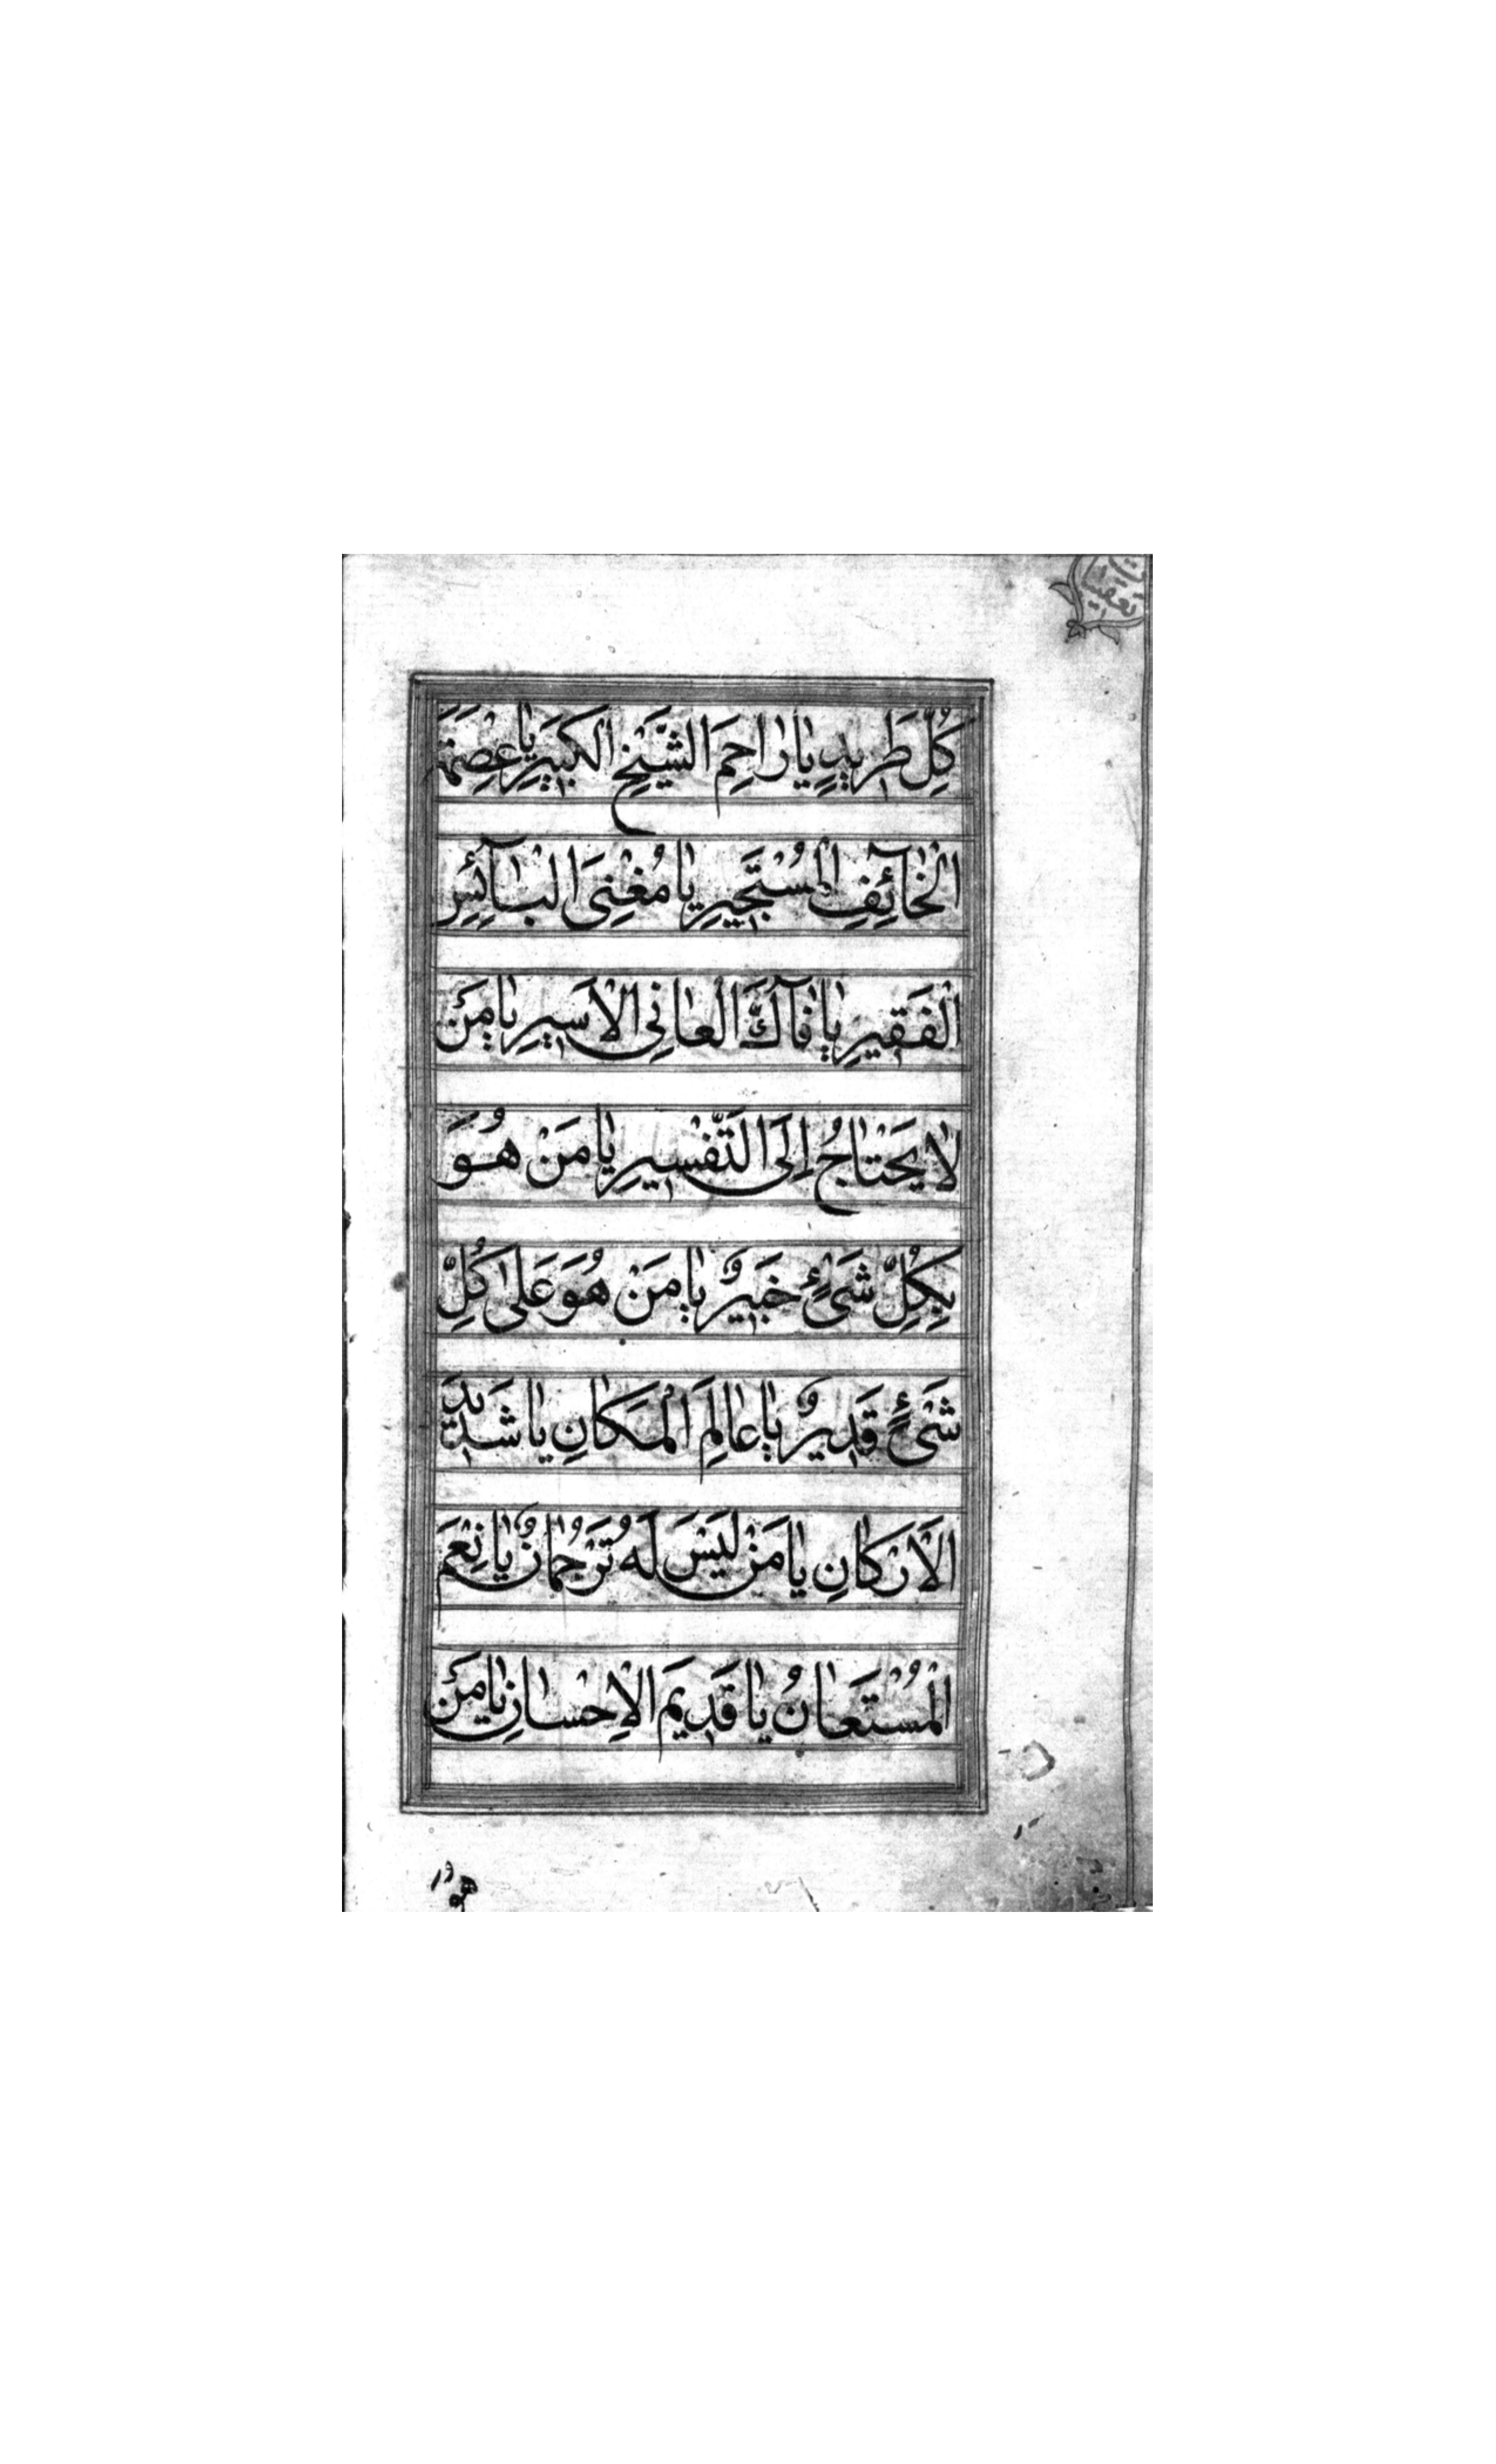 تعقيبات
كُلِّ طَرِيدٍ يَا رَاحِمَ الشَّيْخِ الْكَبِيرِ يَا عِصْمَةَ
الْخَآئِفِ الْمُسْتَجِيرِ يَا مُغْنِىَ الْبَآئِسِ
الْفَقِيرِ يَا فَآكَّ الْعَانِى الْاَسِيرِ يَا مَنْ
لَا يَحْتَاجُ اِلَى التَّفْسِيرِ يَا مَنْ هُوَ
بِكُلِّ شَىْءٍ خَبِيرٌ يَا مَنْ هُوَ عَلٰى كُلِّ
شَىْءٍ قَدِيرٌ يَا عَالِمَ الْمَكَانِ يَا شَدِيدَ
الْاَرْكَانِ يَا مَنْ لَيْسَ لَهُ تَرْجُمَانٌ يَا نِعْمَ
الْمُسْتَعَانُ يَا قَدِيمَ الْاِحْسَانِ يَا مَنْ
هو